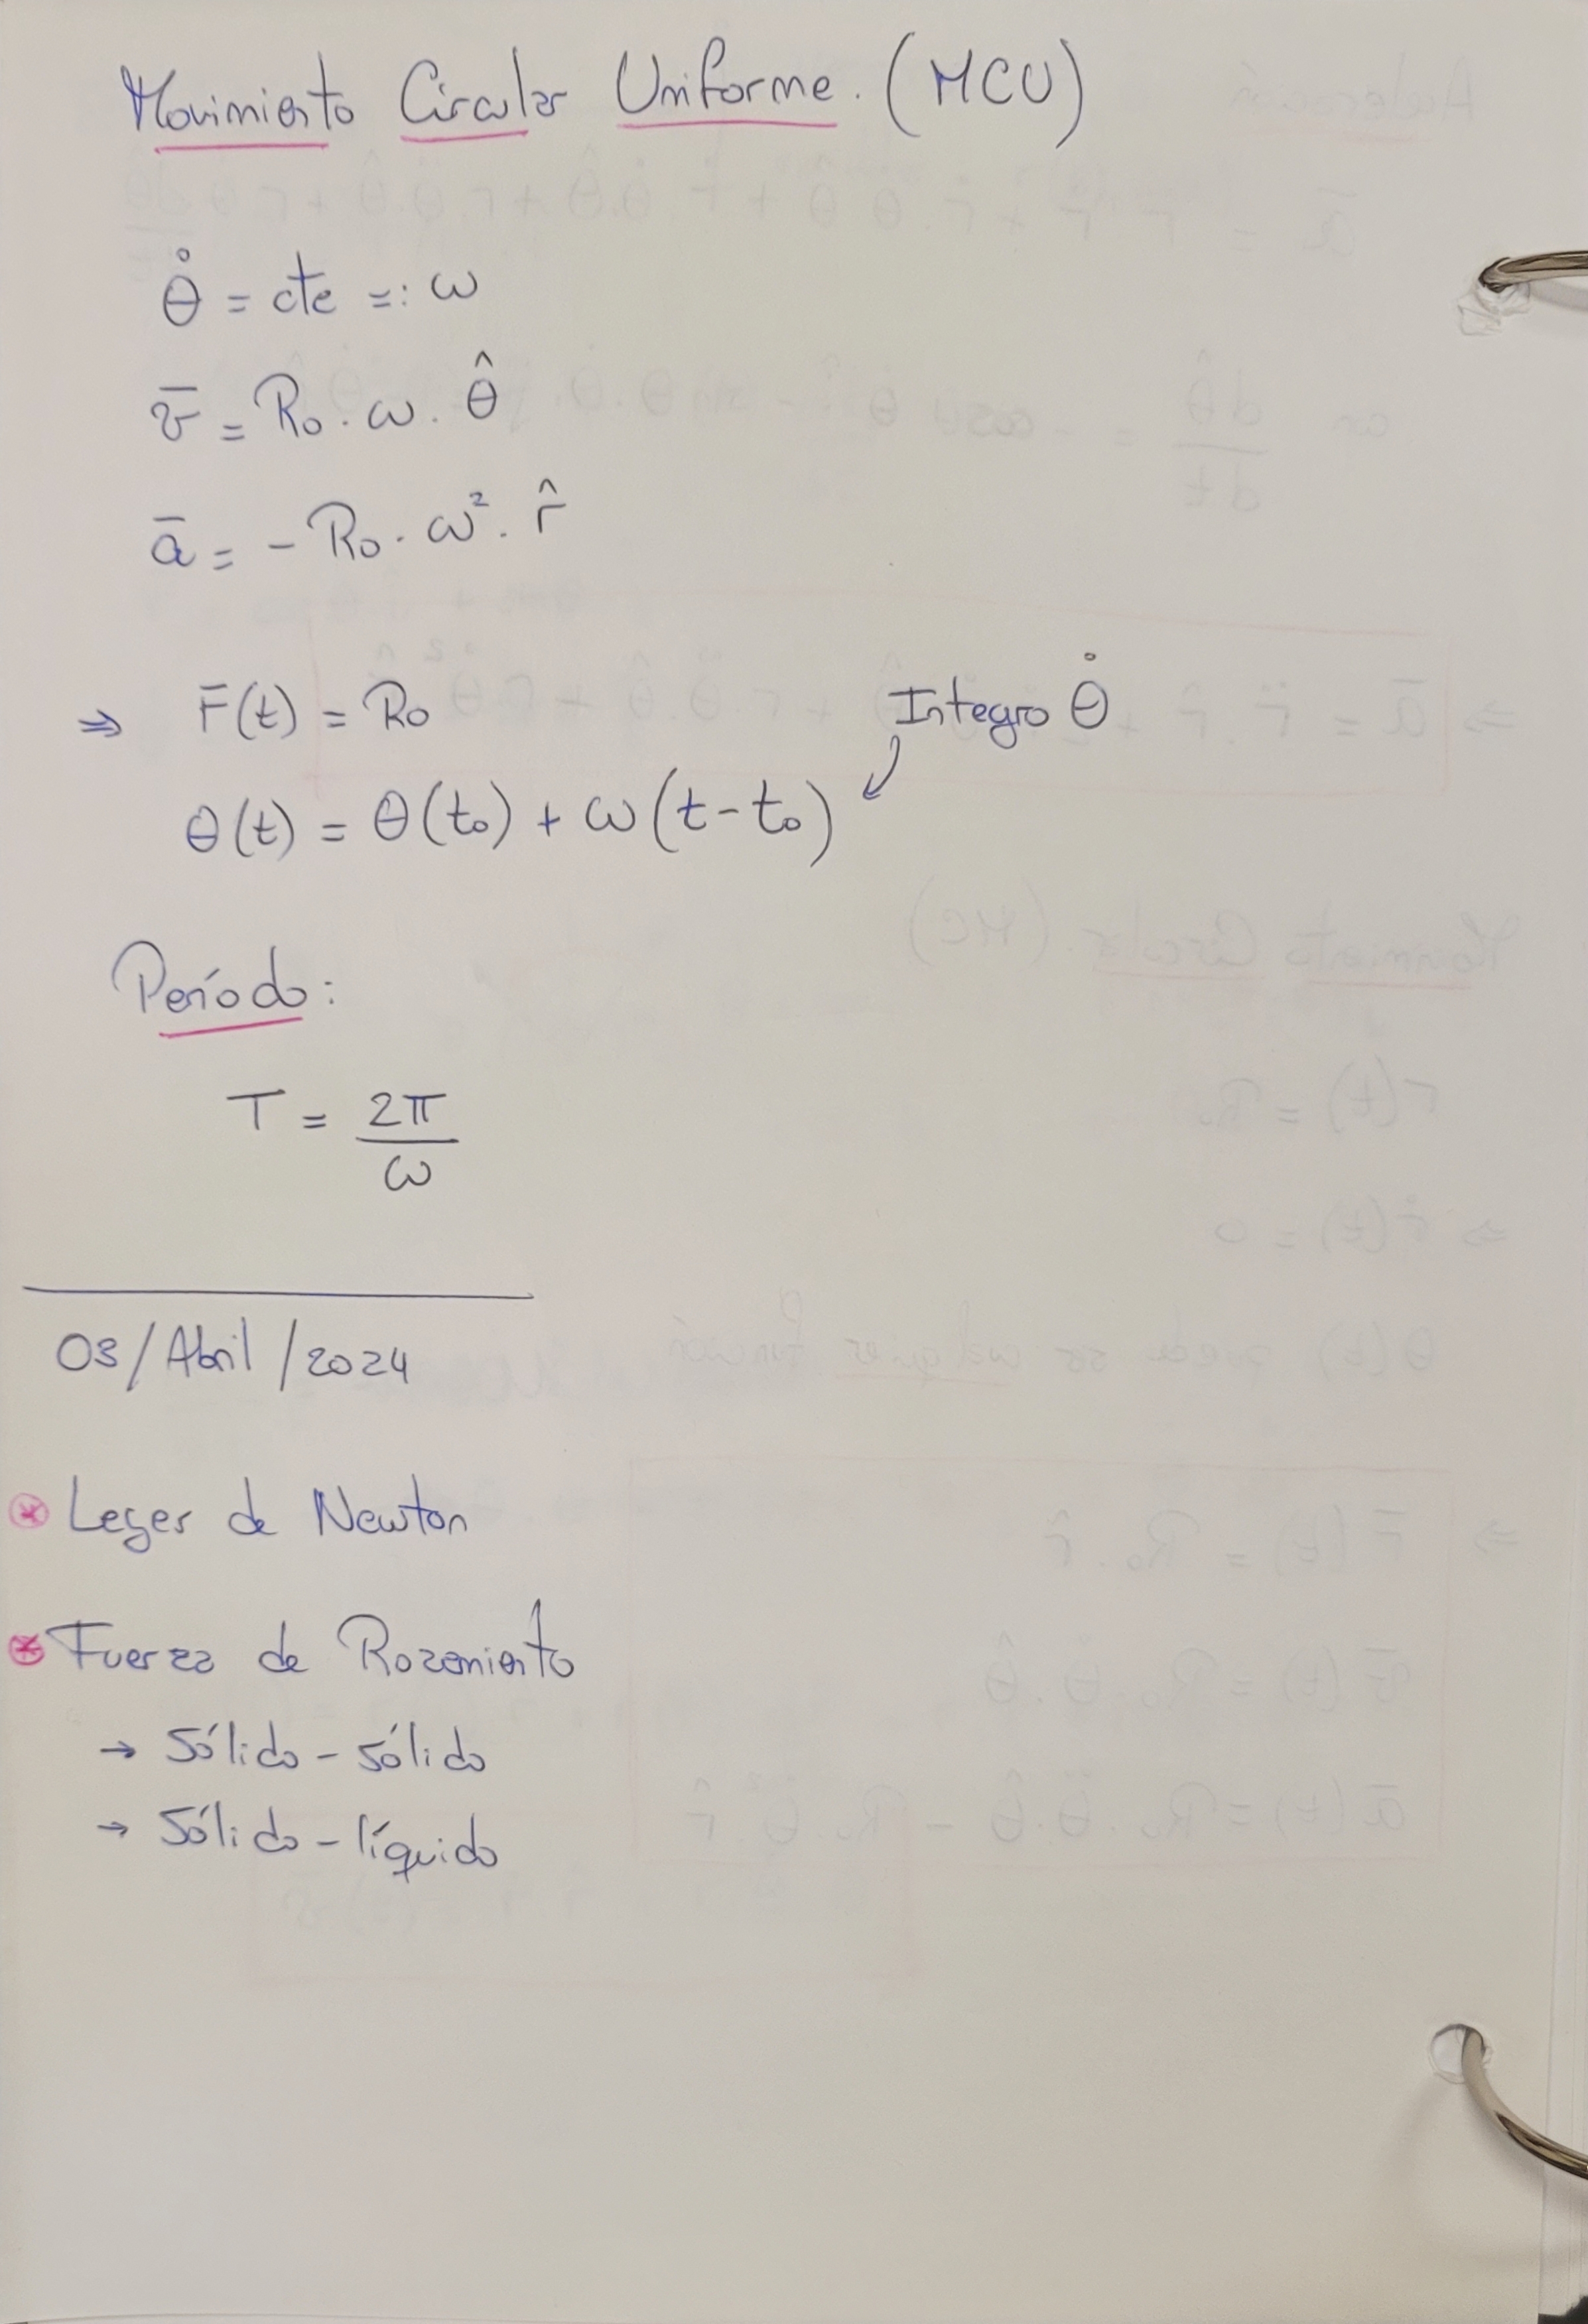 Movimiento Circular Uniforme. (MCU)
θ̇ = cte =: ω
v̄ = R₀ . ω . θ̂
ā = - R₀ . ω² . r̂
⇒ r̄(t) = R₀
Integro θ̇
θ(t) = θ(t₀) + ω(t-t₀)
Período:
T = 2π/ω
03/Abril/2024
* Leyes de Newton
* Fuerza de Rozamiento
→ Sólido-sólido
→ Sólido-líquido